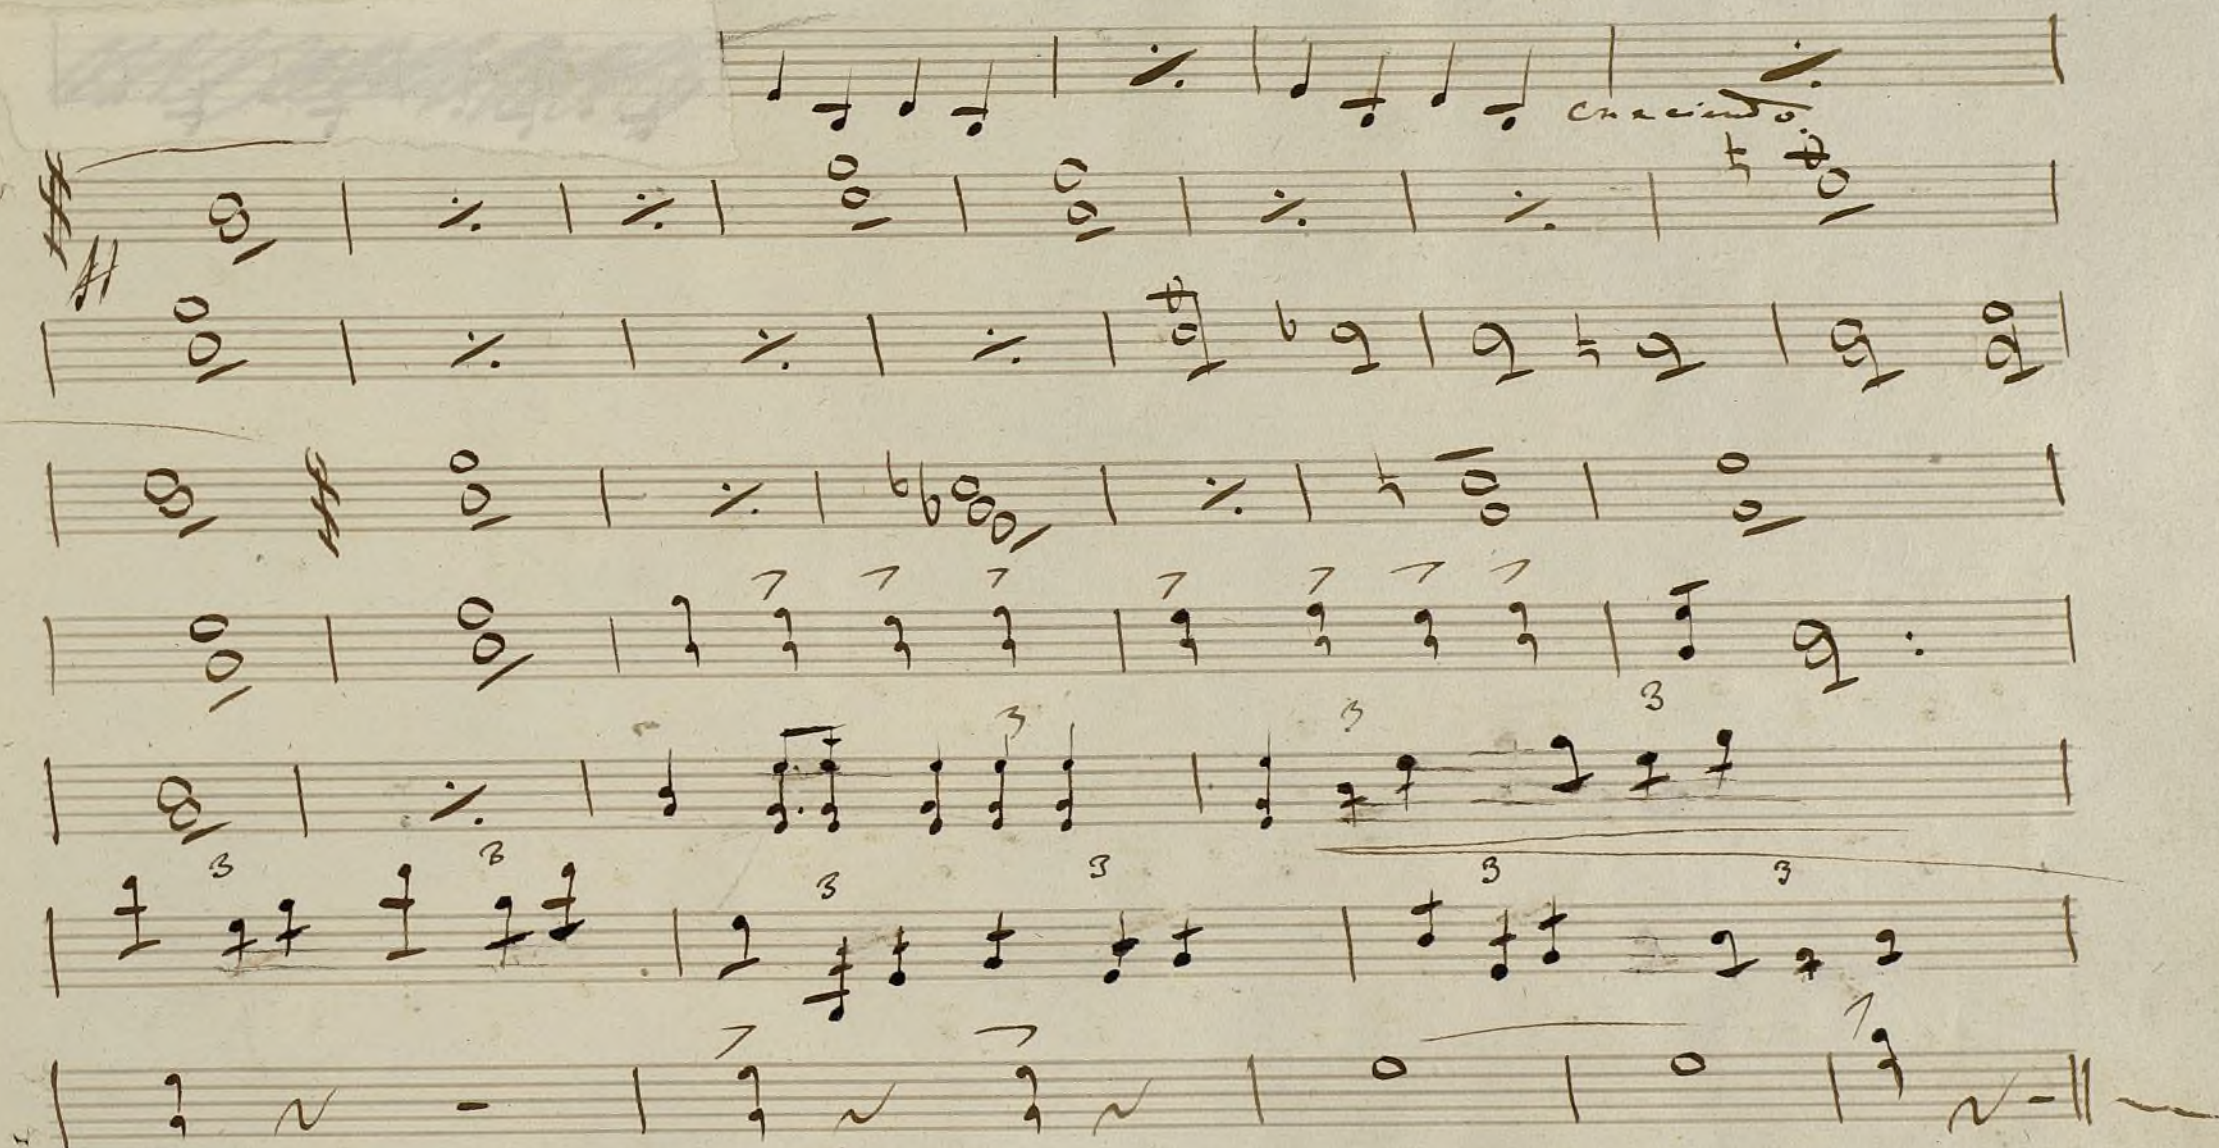 crescendo
3 3 3
3 3 3 3 3 3